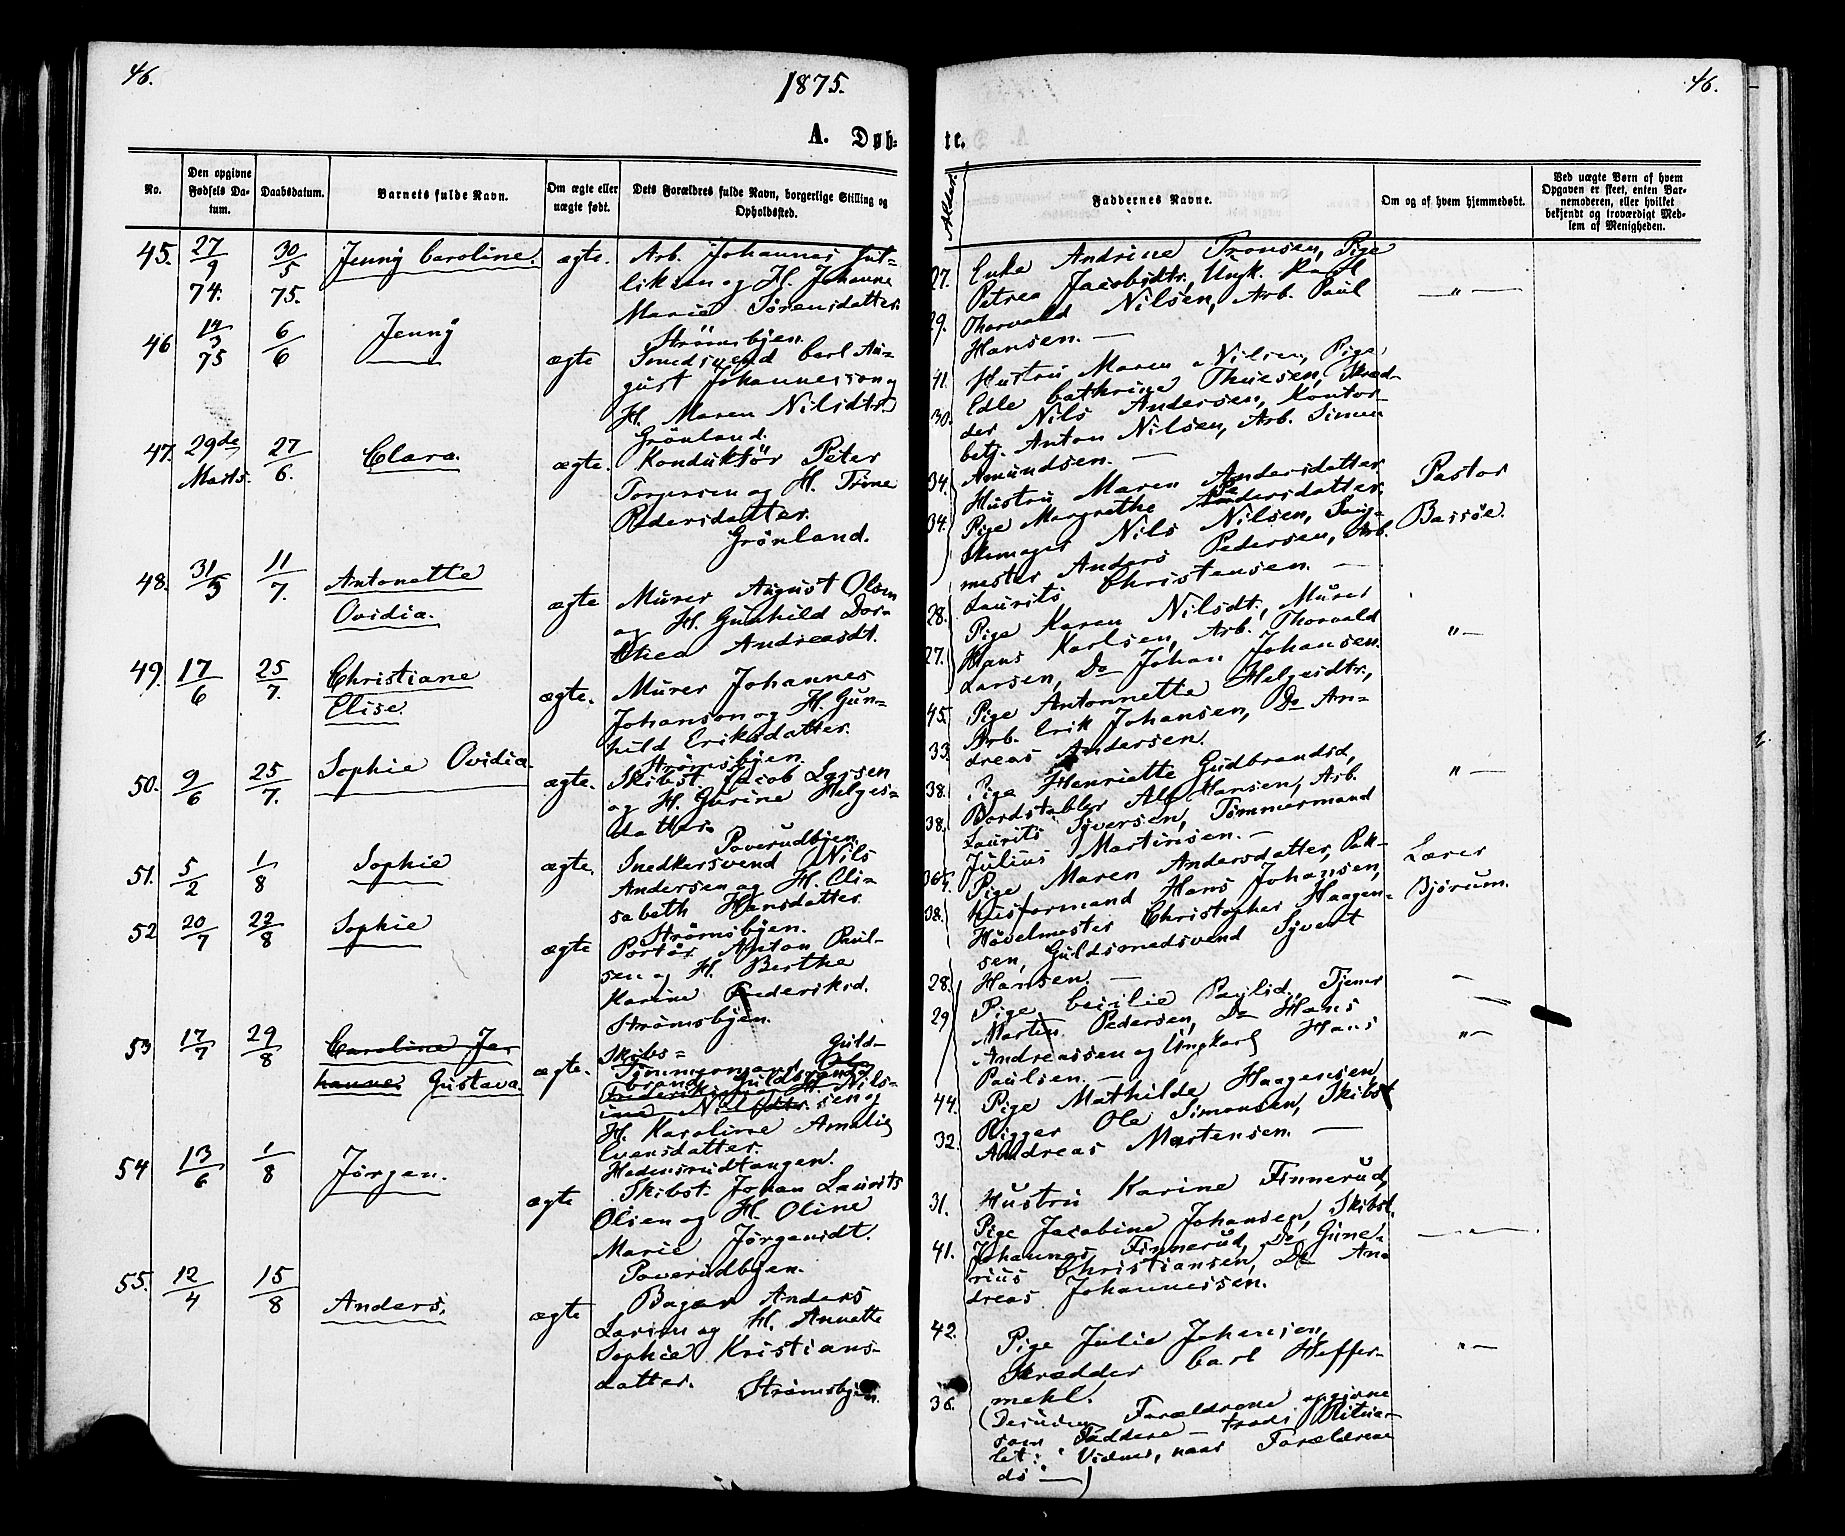 46.
1875.
A. Døb-
No.
Den opgivne Fødsels Datum.
Daabsdatum.
Barnets fulde Navn.
Om ægte eller uægte født.
Dets Forældres fulde Navn, borgerlige Stilling og Opholdssted.
45.
27/9 74.
30/5 75.
Jenny Caroline.
ægte.
Arb. Johannes
og H. Johanne
Marie Sørensdatter.
Strømsbyen.
46
12/3 75
6/6
Jenny
ægte
Smedsvend Carl Au-
gust Johannesson og
H. Maren Nilsdtr.
Grønland.
47.
29de Marts.
27/6.
Clara.
ægte.
Konduktør Peter
Torgersen og H. Trine
Pedersdatter.
Grønland.
48.
31/3
11/7.
Antonette
Ovidia.
ægte
Murer August Olsen
og H. Gunhild Dor-
thea Andreasdt.
49.
17/6
25/7.
Christiane
Elise.
ægte.
Murer Johannes
Johanson og H. Gun-
hild Eriksdatter.
Strømsbyen.
50.
9/6
25/7.
Sophie Ovidia.
ægte.
Skibst. Jacob Larsen
og H. Gurine Helges-
datter.
Poverudbyen
51.
5/2
1/8
Sophie
ægte.
Snedkersvend Nils
Andersen og H. Eli-
sabeth Hansdatter
Strømsbyen.
52
20/7
22/8
Sophie
ægte
Portør Anton Paul-
sen og H. Berthe
Karine Frederiksd.
Strømsbyen.
53
17/7
29/8
Caroline Jo-
hanne Gustava.
ægte.
Skibs= Guld-
Tømmermand
brand Guldbrand-
sen og
H. Karoline Amalie
Evensdatter.
Hedensrudtangen.
54
13/6
1/8
Jørgen.
ægte
Skibst. Johan Laurits
Olsen og H. Oline
Marie Jørgensdt.
Poverudbyen.
55.
12/4
15/8
Anders.
ægte
Bager Anders
Larsen og H. Annette
Sophie Kristians-
datter.
Strømsbyen.
46.
te.
Alder.
Faddernes Navne.
Om og af hvem hjemmedøbt.
Ved uægte Børn af hvem Opgaven er skeet, enten Barnemoderen, eller hvilket bekjendt og troværdigt Medlem af Menigheden.
27.
Enke Andrine Tronsen, Pige
Petrea Jacobsdtr., Ungk. Karl
29.
Thorvald Nilsen, Arb. Paul
Hansen. —
— " —
41.
Hustru Maren Nilsen, Pige
Edle Cathrine Thuesen, Skræd-
30.
der Nils Andersen, Kontor-
betj. Anton Nilsen, Arb. Simen
Amundsen. —
34.
Hustru Maren Andersdatter
34.
Pige Margrethe Andersdatter.
Skomager Nils Nilsen, Sag-
mester Anders Pedersen, Arb.
Laurits Christensen. —
Pastor
Bassøe.
28.
Pige Karen Nilsdt., Murer
27.
Hans Karlsen, Arb. Thorvald
Larsen, Do Johan Johansen.
" —
45.
Pige Antonnette Helgesdtr.,
33.
Arb. Erik Johansen, Do An-
dreas Andersen.
38.
Pige Henriette Gudbrandsd,
Bordstabler Alf Hansen, Arb.
38.
Laurits Syversen, Tømmermand
Julius Martinsen. —
" —
36
Pige Maren Andersdatter, Pak-
38.
husformand Hans Johansen,
Høvelmester Christopher Haagen-
sen, Guldsmedsvend Syvert
Hansen. —
Lærer
Bjørum.
28.
29
Pige Cecilie Paulsd., Tjener
Martin Pedersen, Do Hans
Andreassen og Ungkarl Hans
Paulsen. —
" —
44.
Pige Mathilde Haagensen
32.
Rigger Ole Simonsen, Skibst
Andreas Mortensen. —
31.
Hustru Karine Finnerud,
Pige Jacobine Johansen, Skibst.
41.
Johannes Finnerud, Do Gune-
rius Christiansen, Do An-
dreas Johannessen.
— " —
42.
Pige Julie Johansen,
Skrædder Carl Heffer-
36.
mehl.
(Desuden Forældrene opgivne
som Faddere — trods Ritua-
let: "Vidner, naar Forældrene
dø" —)
" —